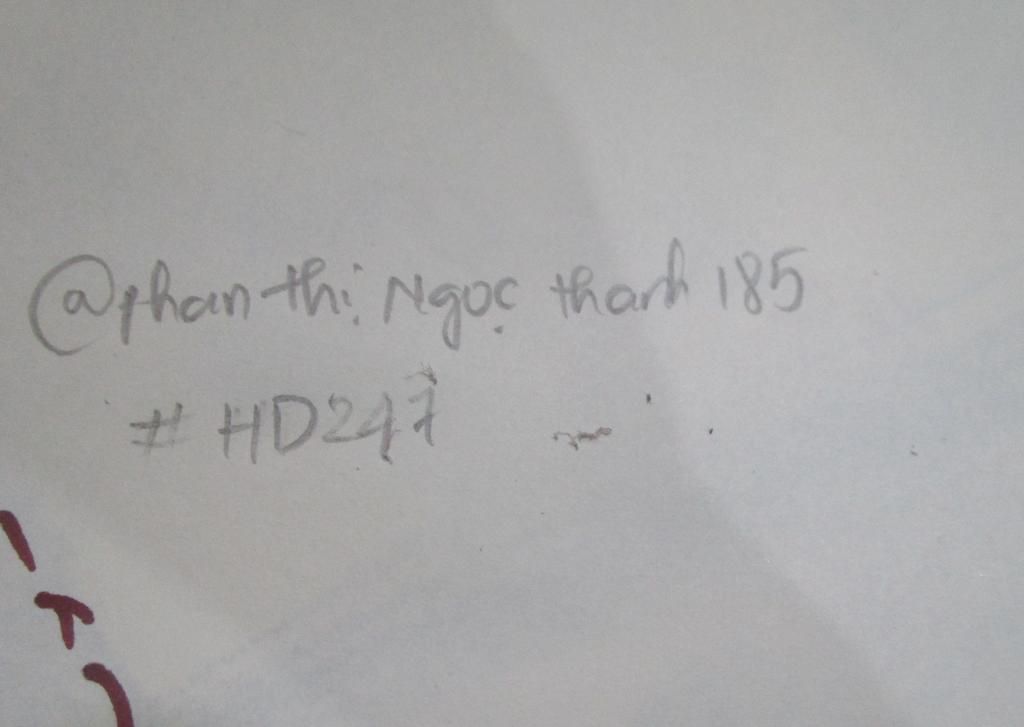 @phan thị Ngọc thanh 185
# HD247